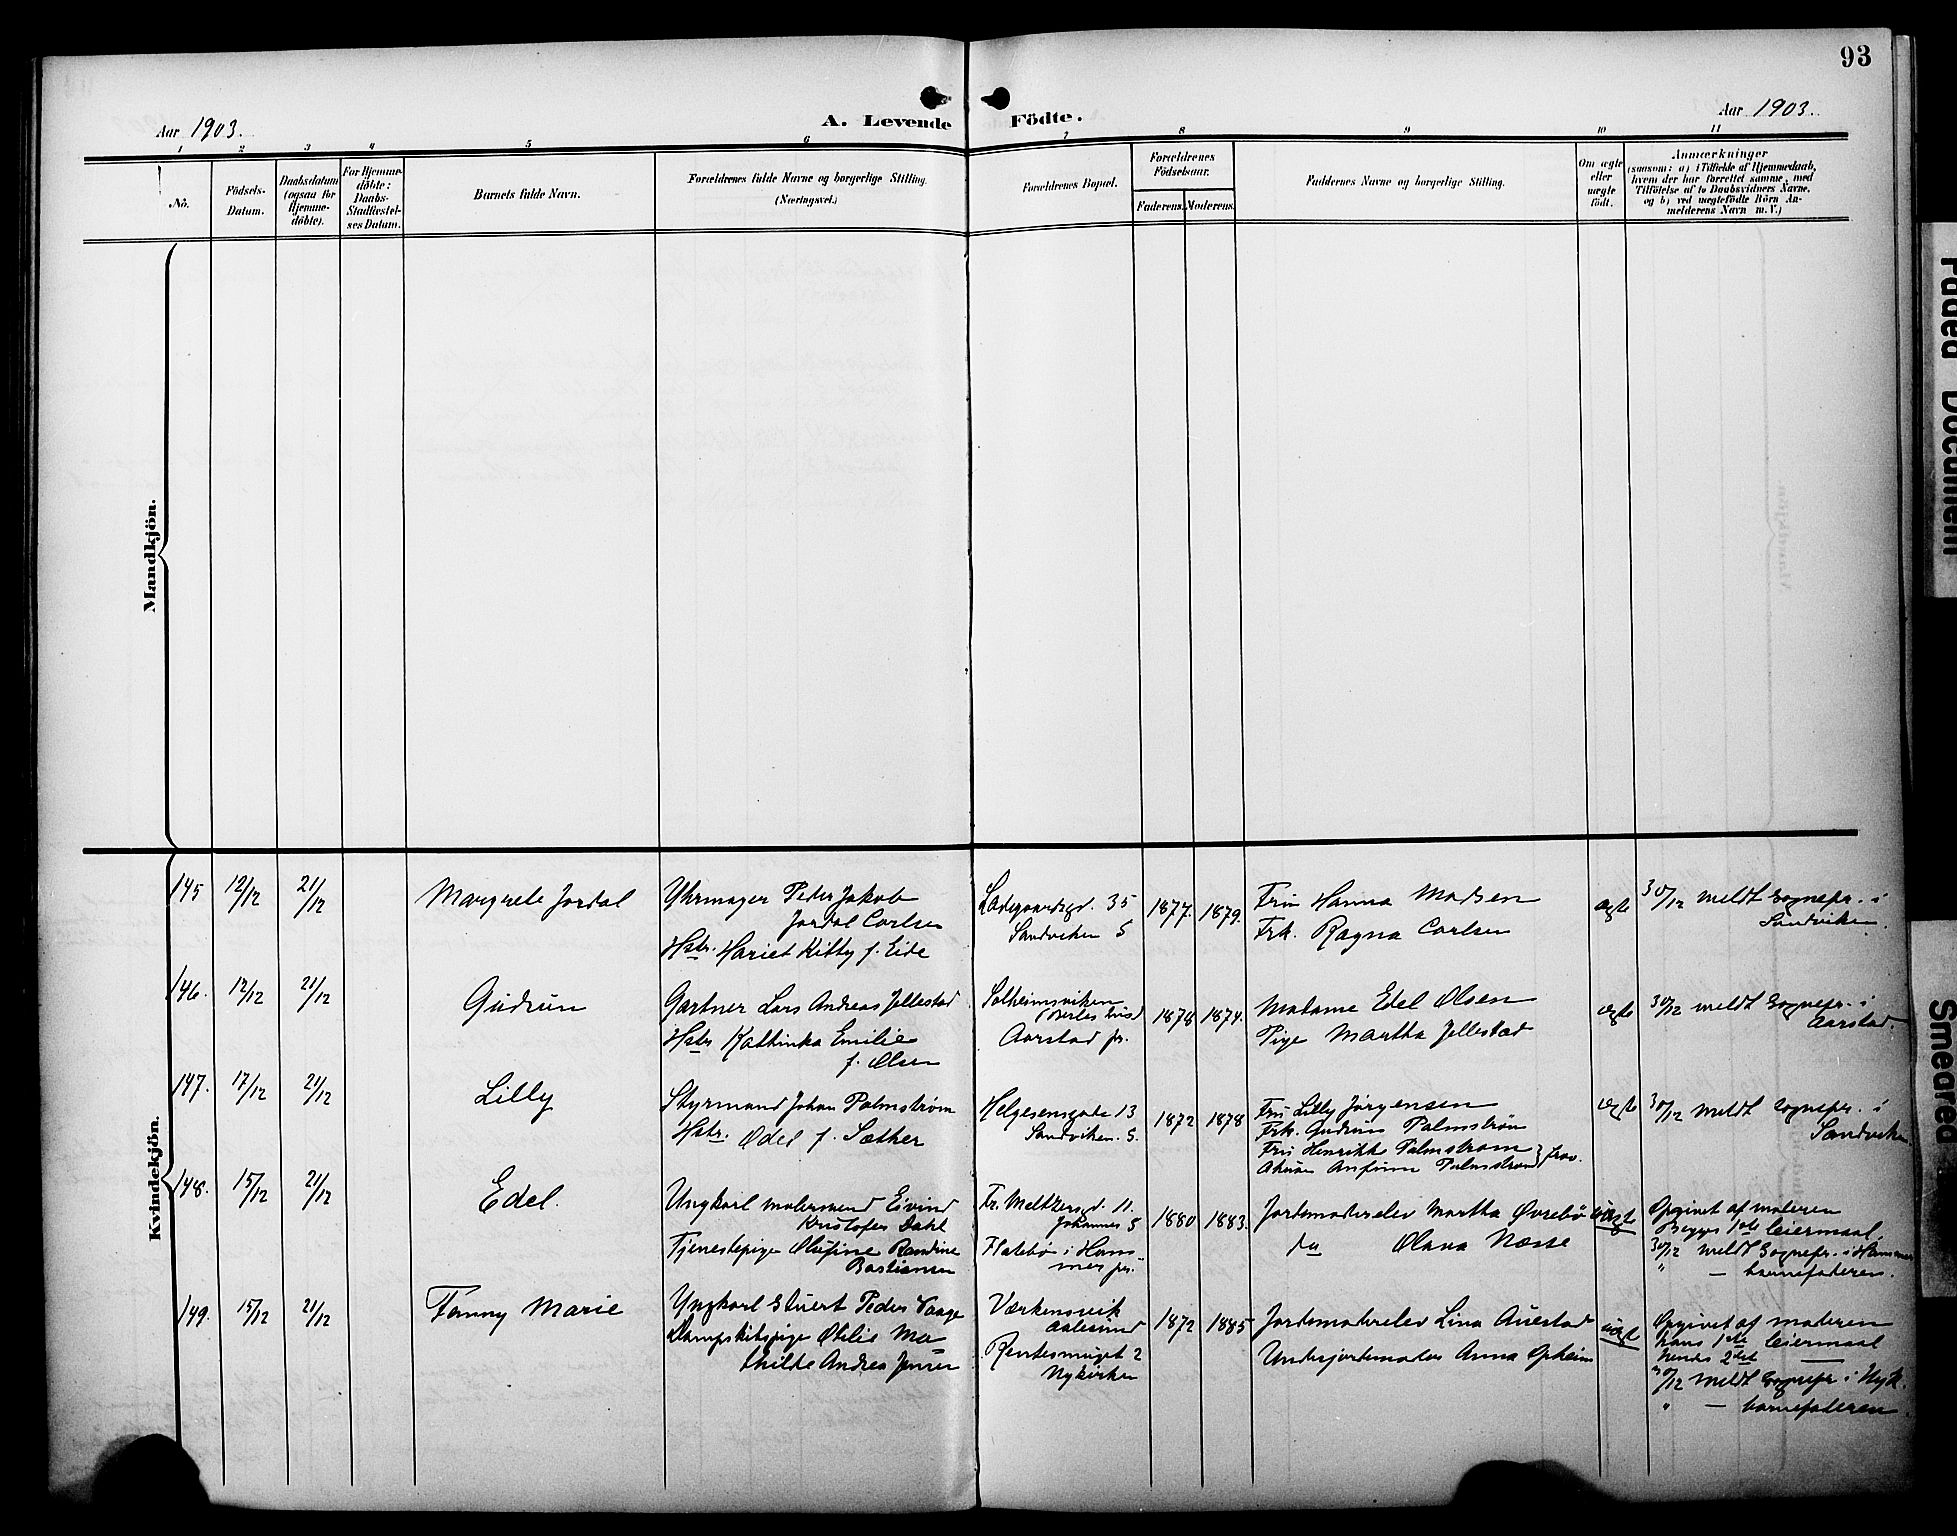 93
Aar 1903.
A. Levende Födte.
Aar 1903.
1 2 3 4 5 6 7 8 9 10 11
No.
Födsels-Datum.
Daabsdatum (ogsaa for Hjemme-döbte).
For Hjemme-döbte: Daabs-Stadfæstel-ses Datum.
Barnets fulde Navn.
Forældrenes fulde Navne og borgerlige Stilling.
(Næringsvei.)
Forældrenes Bopæl.
Forældrenes Födselsaar.
Faderens. Moderens.
Faddernes Navne og borgerlige Stilling.
Om ægte eller uægte födt.
Anmærkninger
(saasom: a) i Tilfælde af Hjemmedaab,
hvem der har forrettet samme, med
Tilföielse af to Daabsvidners Navne,
og b) ved uægtefödte Börn An-
melderens Navn m. V.)
Mandkjön.
Kvindekjön.
145 12/12 21/12 Margrete Jordal
Uhrmager Peder Jakob
Jordal Carlsen
Hstr. Hariet Kitty f. Eide
Ladegaardsgd. 35
Sandviken S
1877. 1879.
Fru Hanna Madsen
Frk. Ragna Carlsen
ægte
30/12 meldt Sognepr. i
Sandviken.
146. 12/12 21/12 Gudrun
Gartner Lars Andreas Jellestad
Hstr Kathinka Emilie
f. Olsen
Solheimsviken
Aarstad pr.
1878 1874.
Madame Edel Olsen
Pige Martha Jellestad
ægte
30/12 meldt Sognepr. i
Aarstad.
147. 17/12 21/12 Lilly
Styrmand Johan Palmstrøm
Hstr. Ødel f. Sæther
Helgesensgade 13
Sandviken S.
1872 1878
Fru Lilly Jørgensen
Frk. Gudrun Palmstrøm
Fru Henrikke Palmstrøm
Anfinn Palmstrøm } frav.
ægte
30/12 meldt Sognepr. i
Sandviken
148. 15/12 21/12 Edel.
Ungkarl malersvend Eivind
Kristofer Dahl
Tjenestepige Olufine Randine
Bastiansen
Fr. Meltzersgd. 11.
Johannes S
Flatebø i Ham-
mer pr.
1880 1883.
Jordemoderelev Martha Øvrebø
do Olava Næsse
uægte
Opgivet af moderen
Begges 1ste leiermaal.
30/12 meldt Sognepr. i Hammer
" — barnefaderen.
149. 15/12 21/12 Fanny Marie
Ungkarl Stuert Peder Vaage
Dampskibspige Otilie Ma-
thilde Andrea Jensen
Værkensvik
Aalesund
Rentesmuget 2
Nykirken
1872 1885
Jordemoderelev Lina Auestad
Underjordemoder Anna Opheim
uægte
Opgivet af moderen
hans 1ste leiermaal
hendes 2det —
30/12 meldt Sognepr i Nyk.
" — barnefaderen.
Faded Document
Smeared